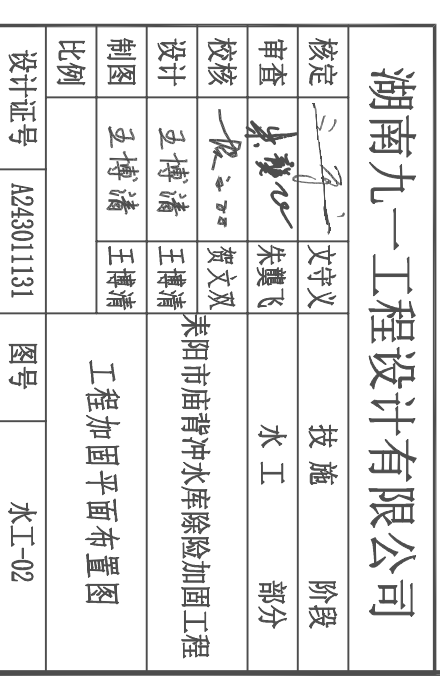 湖南九一工程设计有限公司
核定 文守义 技施 阶段
审查 朱龑飞 水工 部分
校核 贺文双 耒阳市庙背冲水库除险加固工程
设计 王博清 王博清
制图 王博清 王博清 工程加固平面布置图
比例
设计证号 A243011131 图号 水工-02